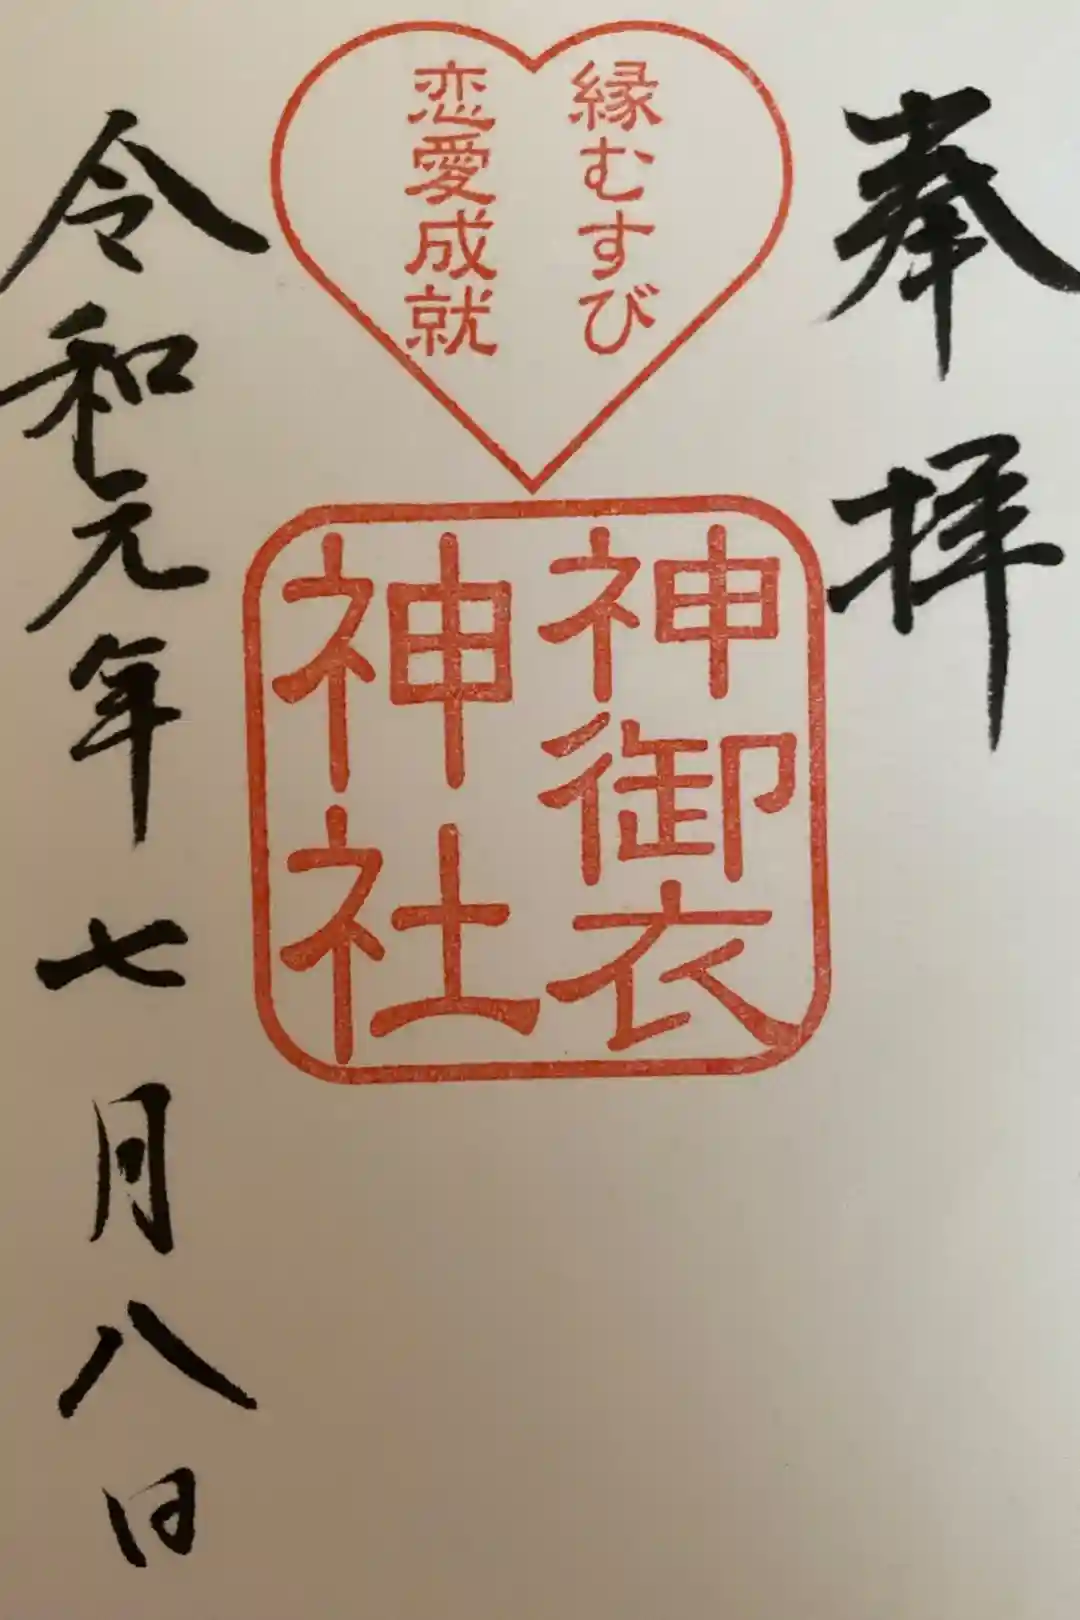 奉拝
縁むすび
恋愛成就
神御衣
神社
令和元年七月八日